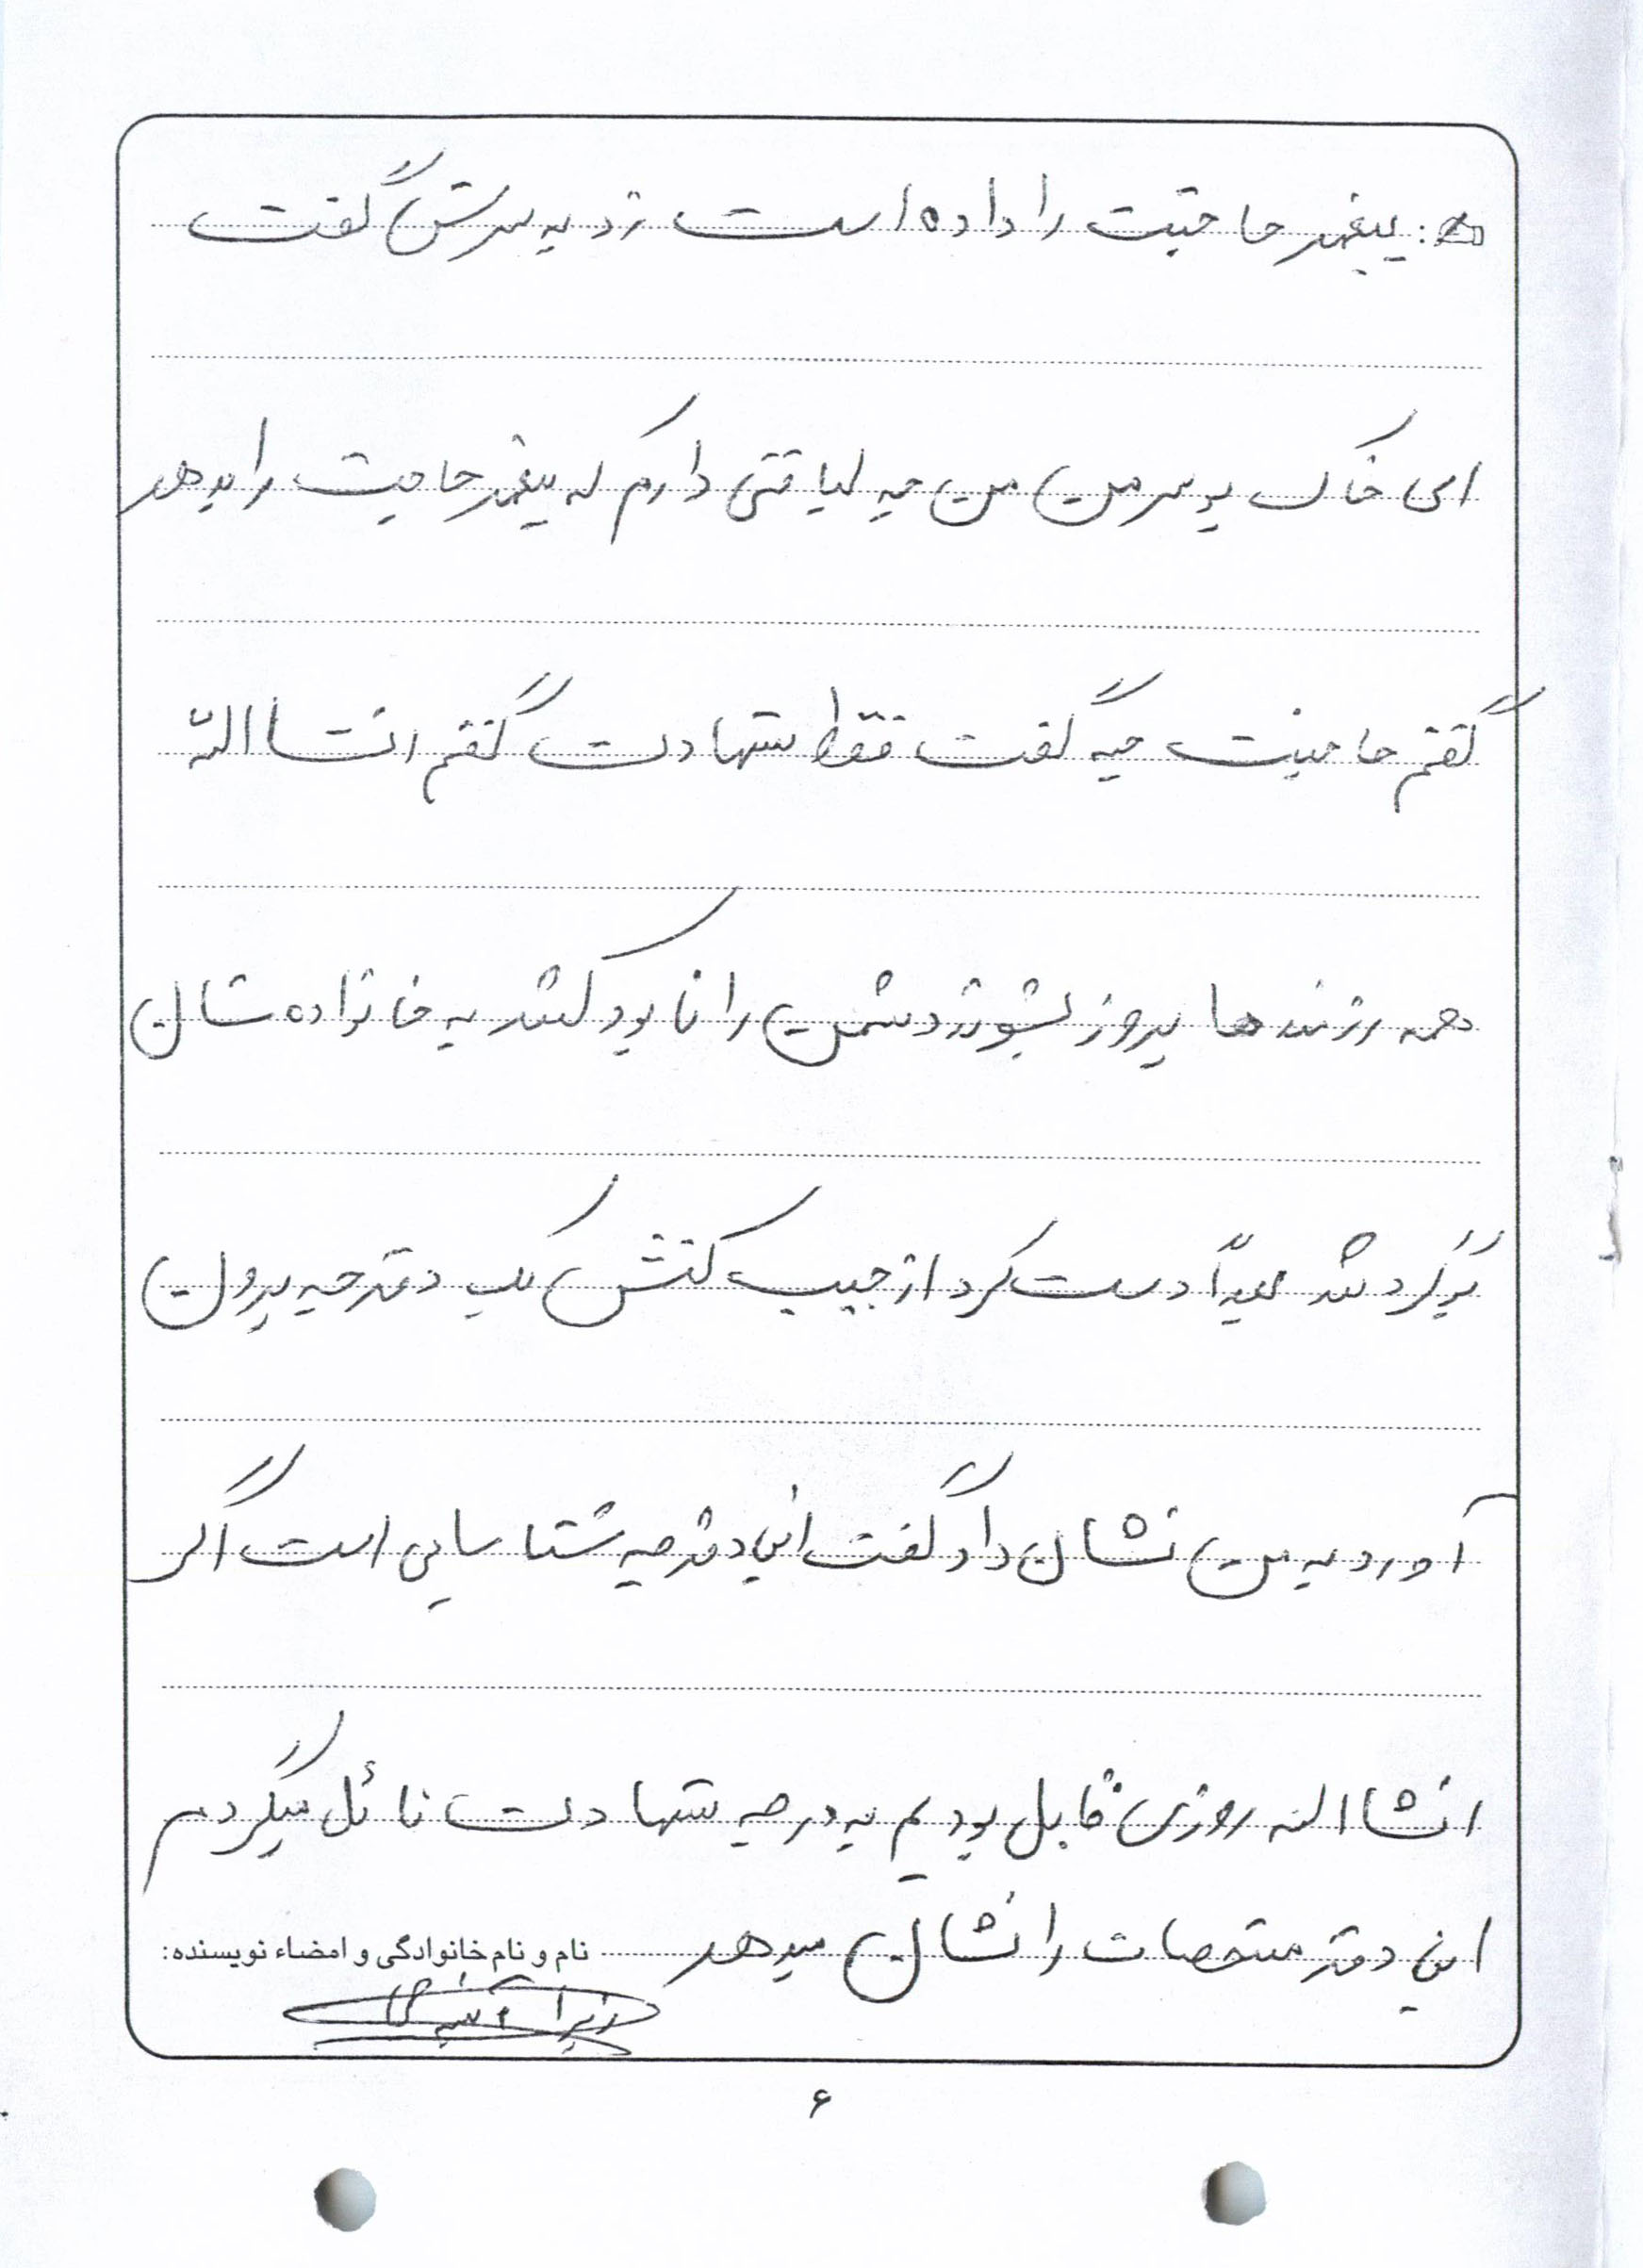 : پیغمبر حاجتت را داده است زد به سرش گفت
ای خاک بر سر من من چه لیاقتی دارم که پیغمبر حاجت را بدهد
گفتم حاجتت چیه گفت فقط شهادت گفتم انشااللّه
همه رزمنده‌ها پیروز بشوند دشمن را نابود کنند به خانواده شان
برگردند بعداً دست کرد از جیب کتش یک دفترچه بیرون
آورد به من نشان داد گفت این دفترچه شناسایی است اگر
انشاالله روزی قابل بودیم به درجه شهادت نائل میگردم
این دفتر مشخصات را نشان میدهد
نام و نام خانوادگی و امضاء نویسنده:
۶